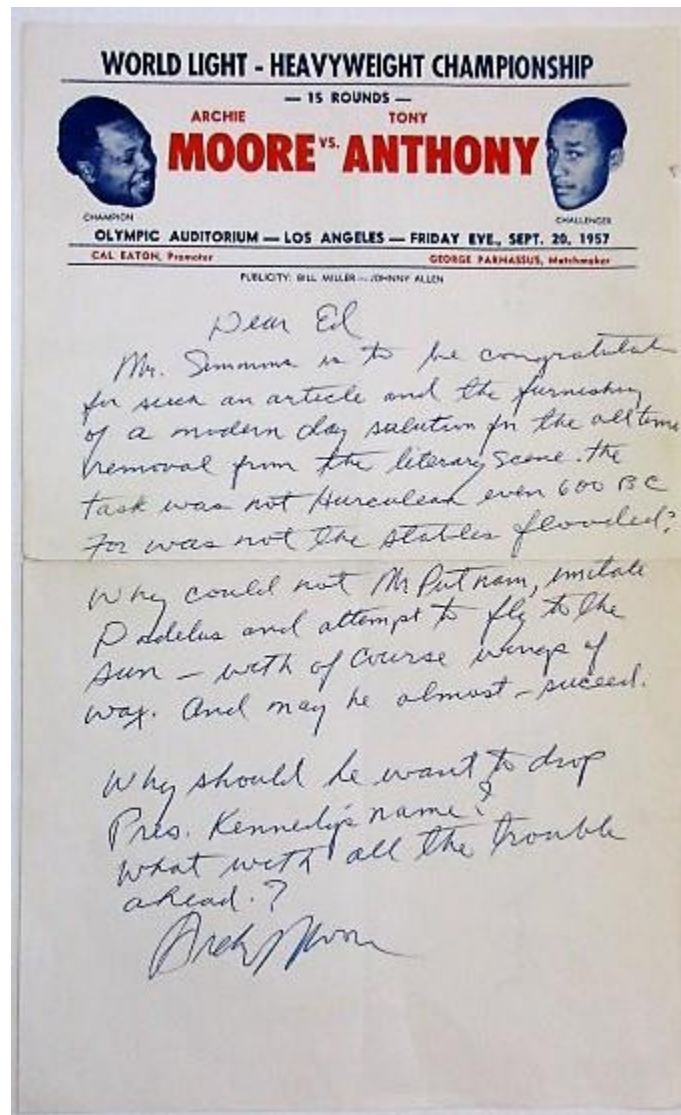 WORLD LIGHT - HEAVYWEIGHT CHAMPIONSHIP
— 15 ROUNDS —
ARCHIE TONY
MOORE VS. ANTHONY
CHAMPION CHALLENGER
OLYMPIC AUDITORIUM — LOS ANGELES — FRIDAY EVE., SEPT. 20, 1957
CAL EATON, Promoter GEORGE PARNASSUS, Matchmaker
PUBLICITY: BILL MILLER — JOHNNY ALLEN
Dear Ed
Mr. Simmons is to be congratulat
for such an article and the furnishing
of a modern day salution for the all time
removal from the literary scene. the
task was not Hurculean even 600 BC
For was not the stables flooded?
Why could not Mr Putnam, imitate
Dadelus and attempt to fly to the
sun – with of course wings of
wax. And may he almost – suceed.
Why should he want to drop
Pres. Kennedy's name?
What with all the trouble
ahead.?
Archie Moore